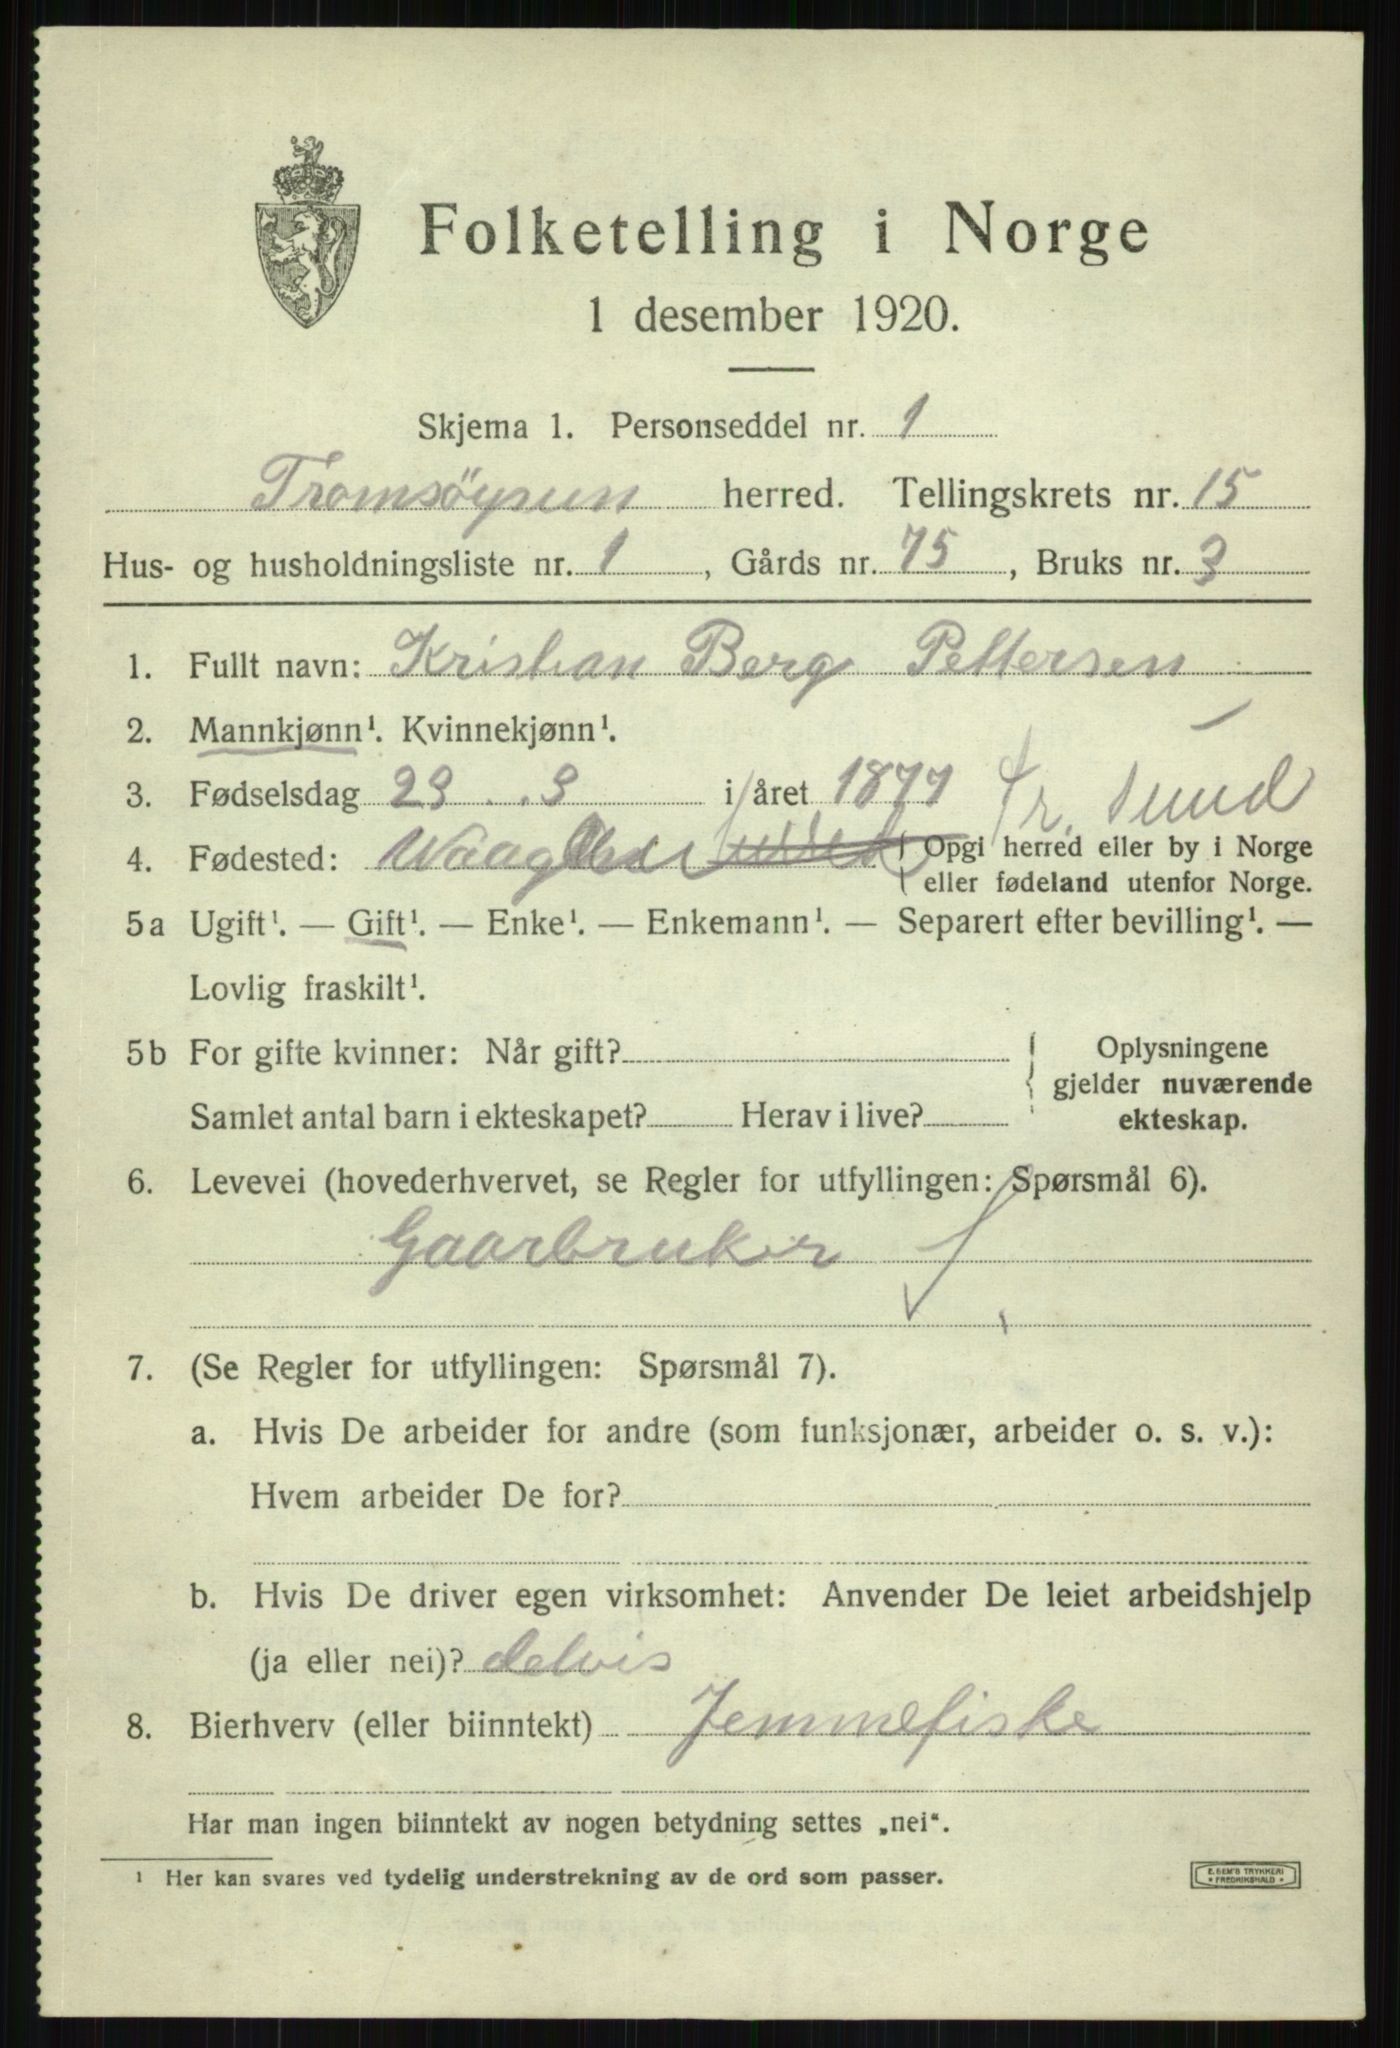 Folketelling i Norge
1 desember 1920.
Skjema 1. Personseddel nr. 1
Tromsöysun herred. Tellingskrets nr. 15
Hus- og husholdningsliste nr. 1, Gårds nr. 75, Bruks nr. 3
1. Fullt navn: Kristian Berg Pettersen
2. Mannkjønn¹. Kvinnekjønn¹.
3. Fødselsdag 23 . 3 i året 1877
Tr. sund
4. Fødested: Opgi herred eller by i Norge
eller fødeland utenfor Norge.
5a Ugift¹. — Gift¹. — Enke¹. — Enkemann¹. — Separert efter bevilling¹. —
Lovlig fraskilt¹.
5b For gifte kvinner: Når gift? Oplysningene
gjelder nuværende
Samlet antal barn i ekteskapet? Herav i live? ekteskap.
6. Levevei (hovederhvervet, se Regler for utfyllingen: Spørsmål 6).
Gaarbruker
7. (Se Regler for utfyllingen: Spørsmål 7).
a. Hvis De arbeider for andre (som funksjonær, arbeider o. s. v.):
Hvem arbeider De for?
b. Hvis De driver egen virksomhet: Anvender De leiet arbeidshjelp
(ja eller nei)? delvis
8. Bierhverv (eller biinntekt) Jemmefiske
Har man ingen biinntekt av nogen betydning settes „nei“.
¹ Her kan svares ved tydelig understrekning av de ord som passer.
E. SEM'S TRYKKERI
FREDRIKSHALD